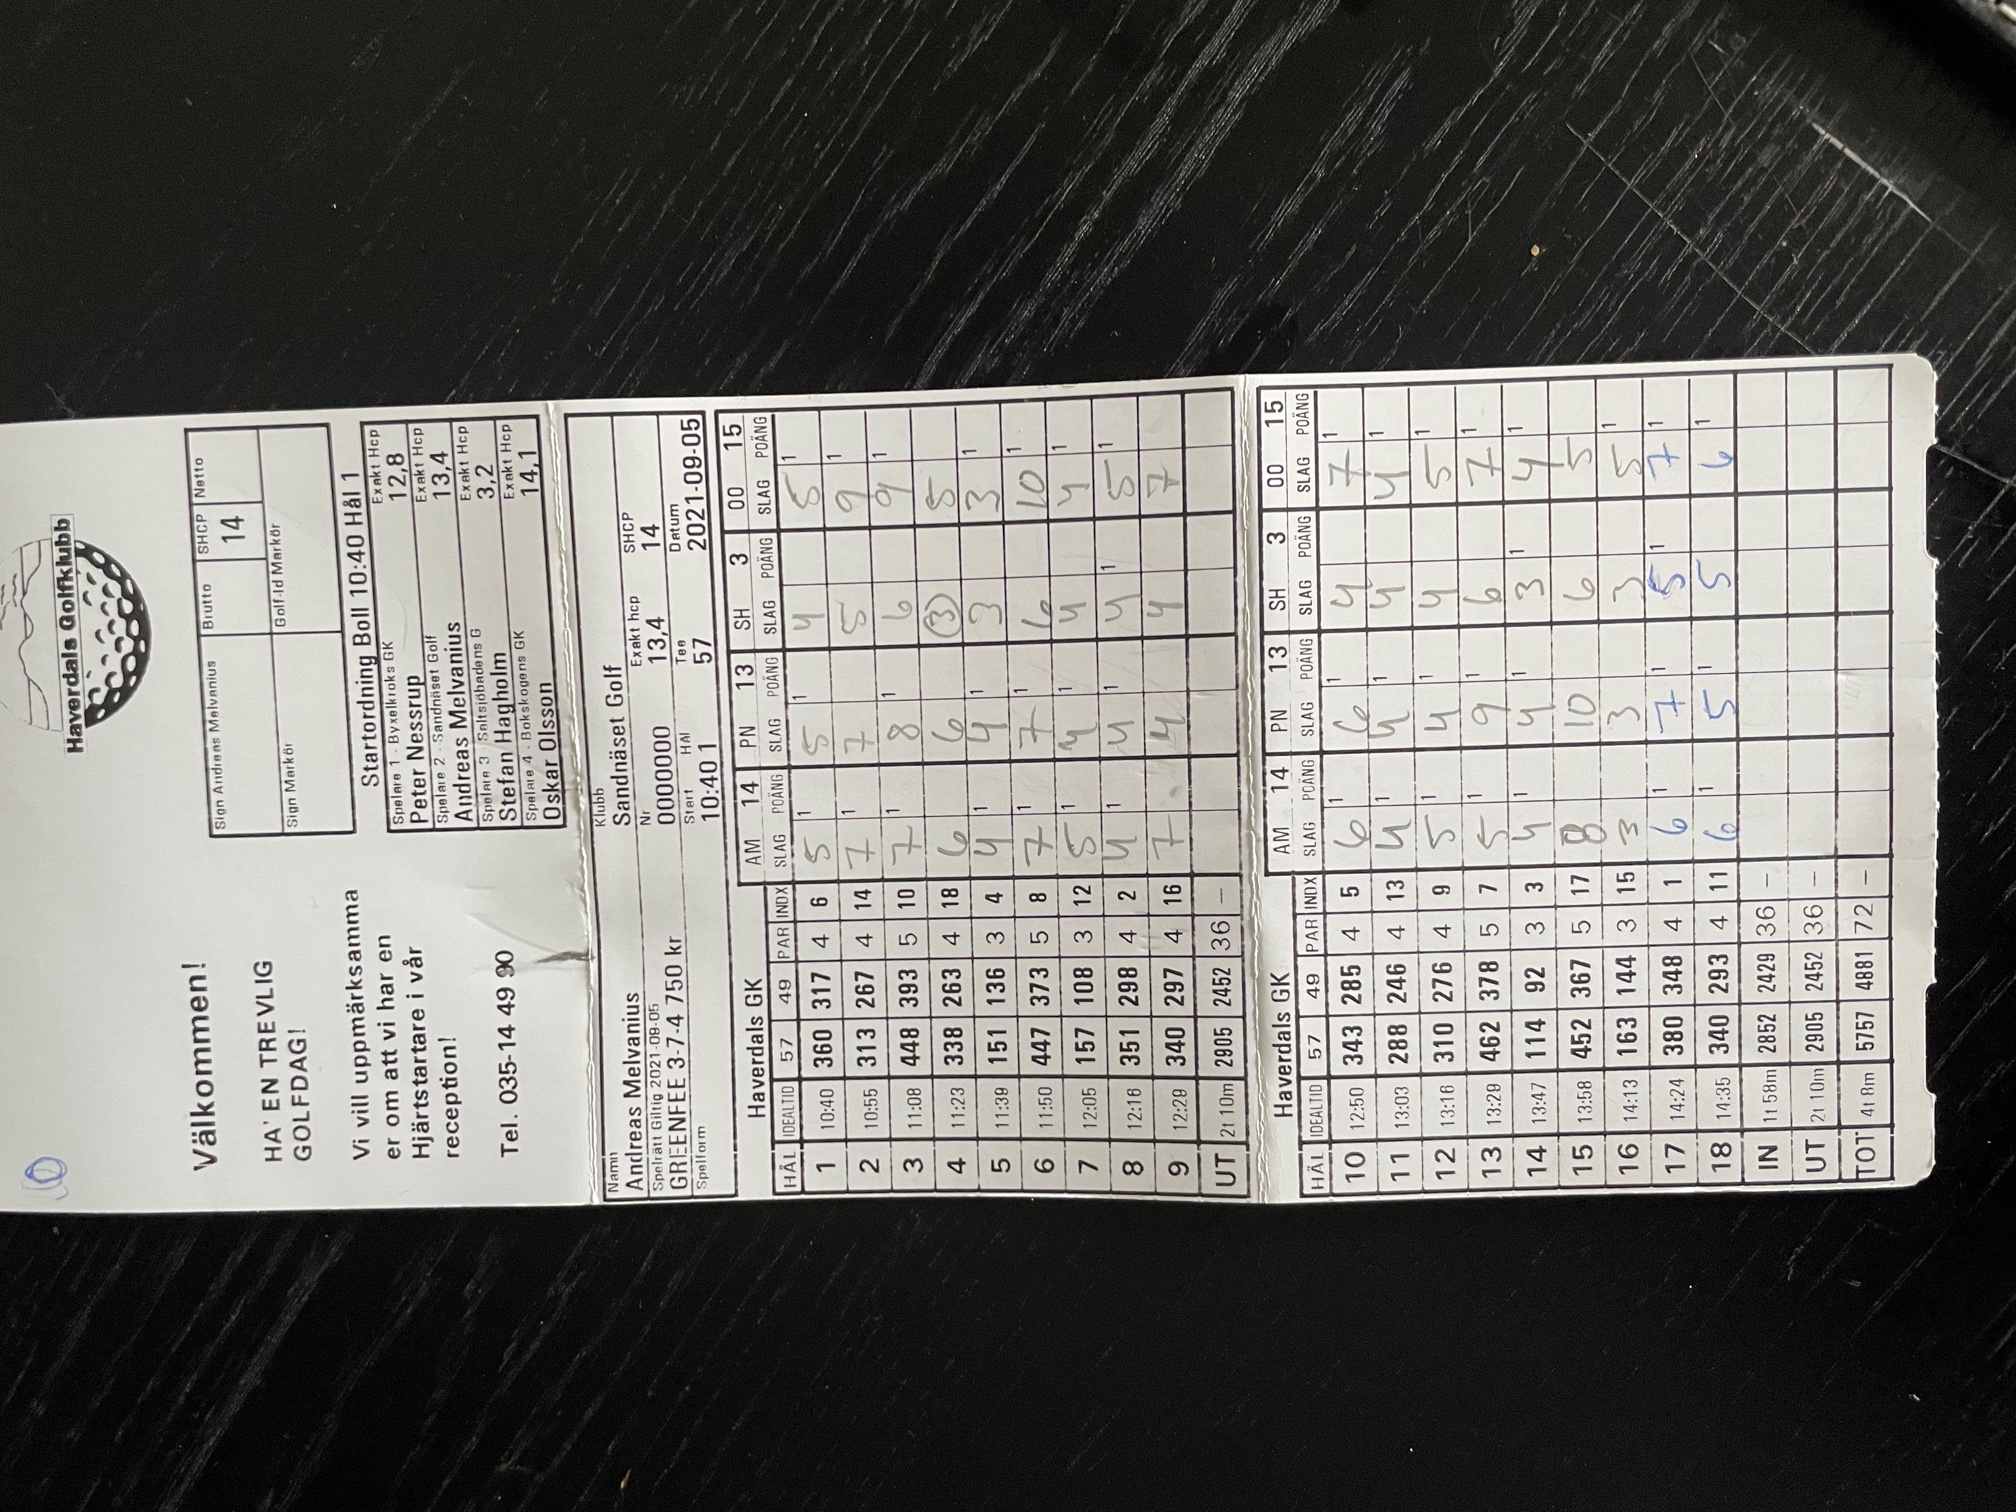 Haverdals Golfklubb
Sign Andreas Melvanius Brutto SHCP Netto
14
Sign Markör Golf-Id Markör
Välkommen!
HA' EN TREVLIG
GOLFDAG!
Vi vill uppmärksamma
er om att vi har en
Hjärtstartare i vår
reception!
Tel. 035-14 49 90
Startordning Boll 10:40 Hål 1
Spelare 1 - Byxelkroks GK Exakt Hcp
Peter Nessrup 12,8
Spelare 2 - Sandnäset Golf Exakt Hcp
Andreas Melvanius 13,4
Spelare 3 - Saltsjöbadens G Exakt Hcp
Stefan Hagholm 3,2
Spelare 4 - Bokskogens GK Exakt Hcp
Oskar Olsson 14,1
Namn Klubb
Andreas Melvanius Sandnäset Golf
Spelrätt Giltig 2021-09-05 Nr Exakt hcp SHCP
GREENFEE 3-7-4 750 kr 0000000 13,4 14
Spelform Start Hål Tee Datum
10:40 1 57 2021-09-05
Haverdals GK AM 14 PN 13 SH 3 OO 15
HÅL IDEALTID 57 49 PAR INDX SLAG POÄNG SLAG POÄNG SLAG POÄNG SLAG POÄNG
1 10:40 360 317 4 6 5 1 5 1 4 5 1
2 10:55 313 267 4 14 7 1 7 5 9 1
3 11:08 448 393 5 10 7 1 8 1 6 9 1
4 11:23 338 263 4 18 6 6 3 5
5 11:39 151 136 3 4 4 1 4 1 3 3 1
6 11:50 447 373 5 8 7 1 7 1 6 10 1
7 12:05 157 108 3 12 5 1 4 1 4 4 1
8 12:16 351 298 4 2 4 1 4 1 4 1 5 1
9 12:29 340 297 4 16 7 4 4 7
UT 2t 10m 2905 2452 36 –
Haverdals GK AM 14 PN 13 SH 3 OO 15
HÅL IDEALTID 57 49 PAR INDX SLAG POÄNG SLAG POÄNG SLAG POÄNG SLAG POÄNG
10 12:50 343 285 4 5 6 1 6 1 4 7 1
11 13:03 288 246 4 13 4 1 4 1 4 4 1
12 13:16 310 276 4 9 5 1 4 1 4 5 1
13 13:29 462 378 5 7 5 1 9 1 6 7 1
14 13:47 114 92 3 3 4 1 4 1 3 1 4 1
15 13:58 452 367 5 17 8 10 6 5
16 14:13 163 144 3 15 3 3 3 5 1
17 14:24 380 348 4 1 6 1 7 1 5 1 7 1
18 14:35 340 293 4 11 6 1 5 1 5 6 1
IN 1t 58m 2852 2429 36 –
UT 2t 10m 2905 2452 36 –
TOT 4t 8m 5757 4881 72 –